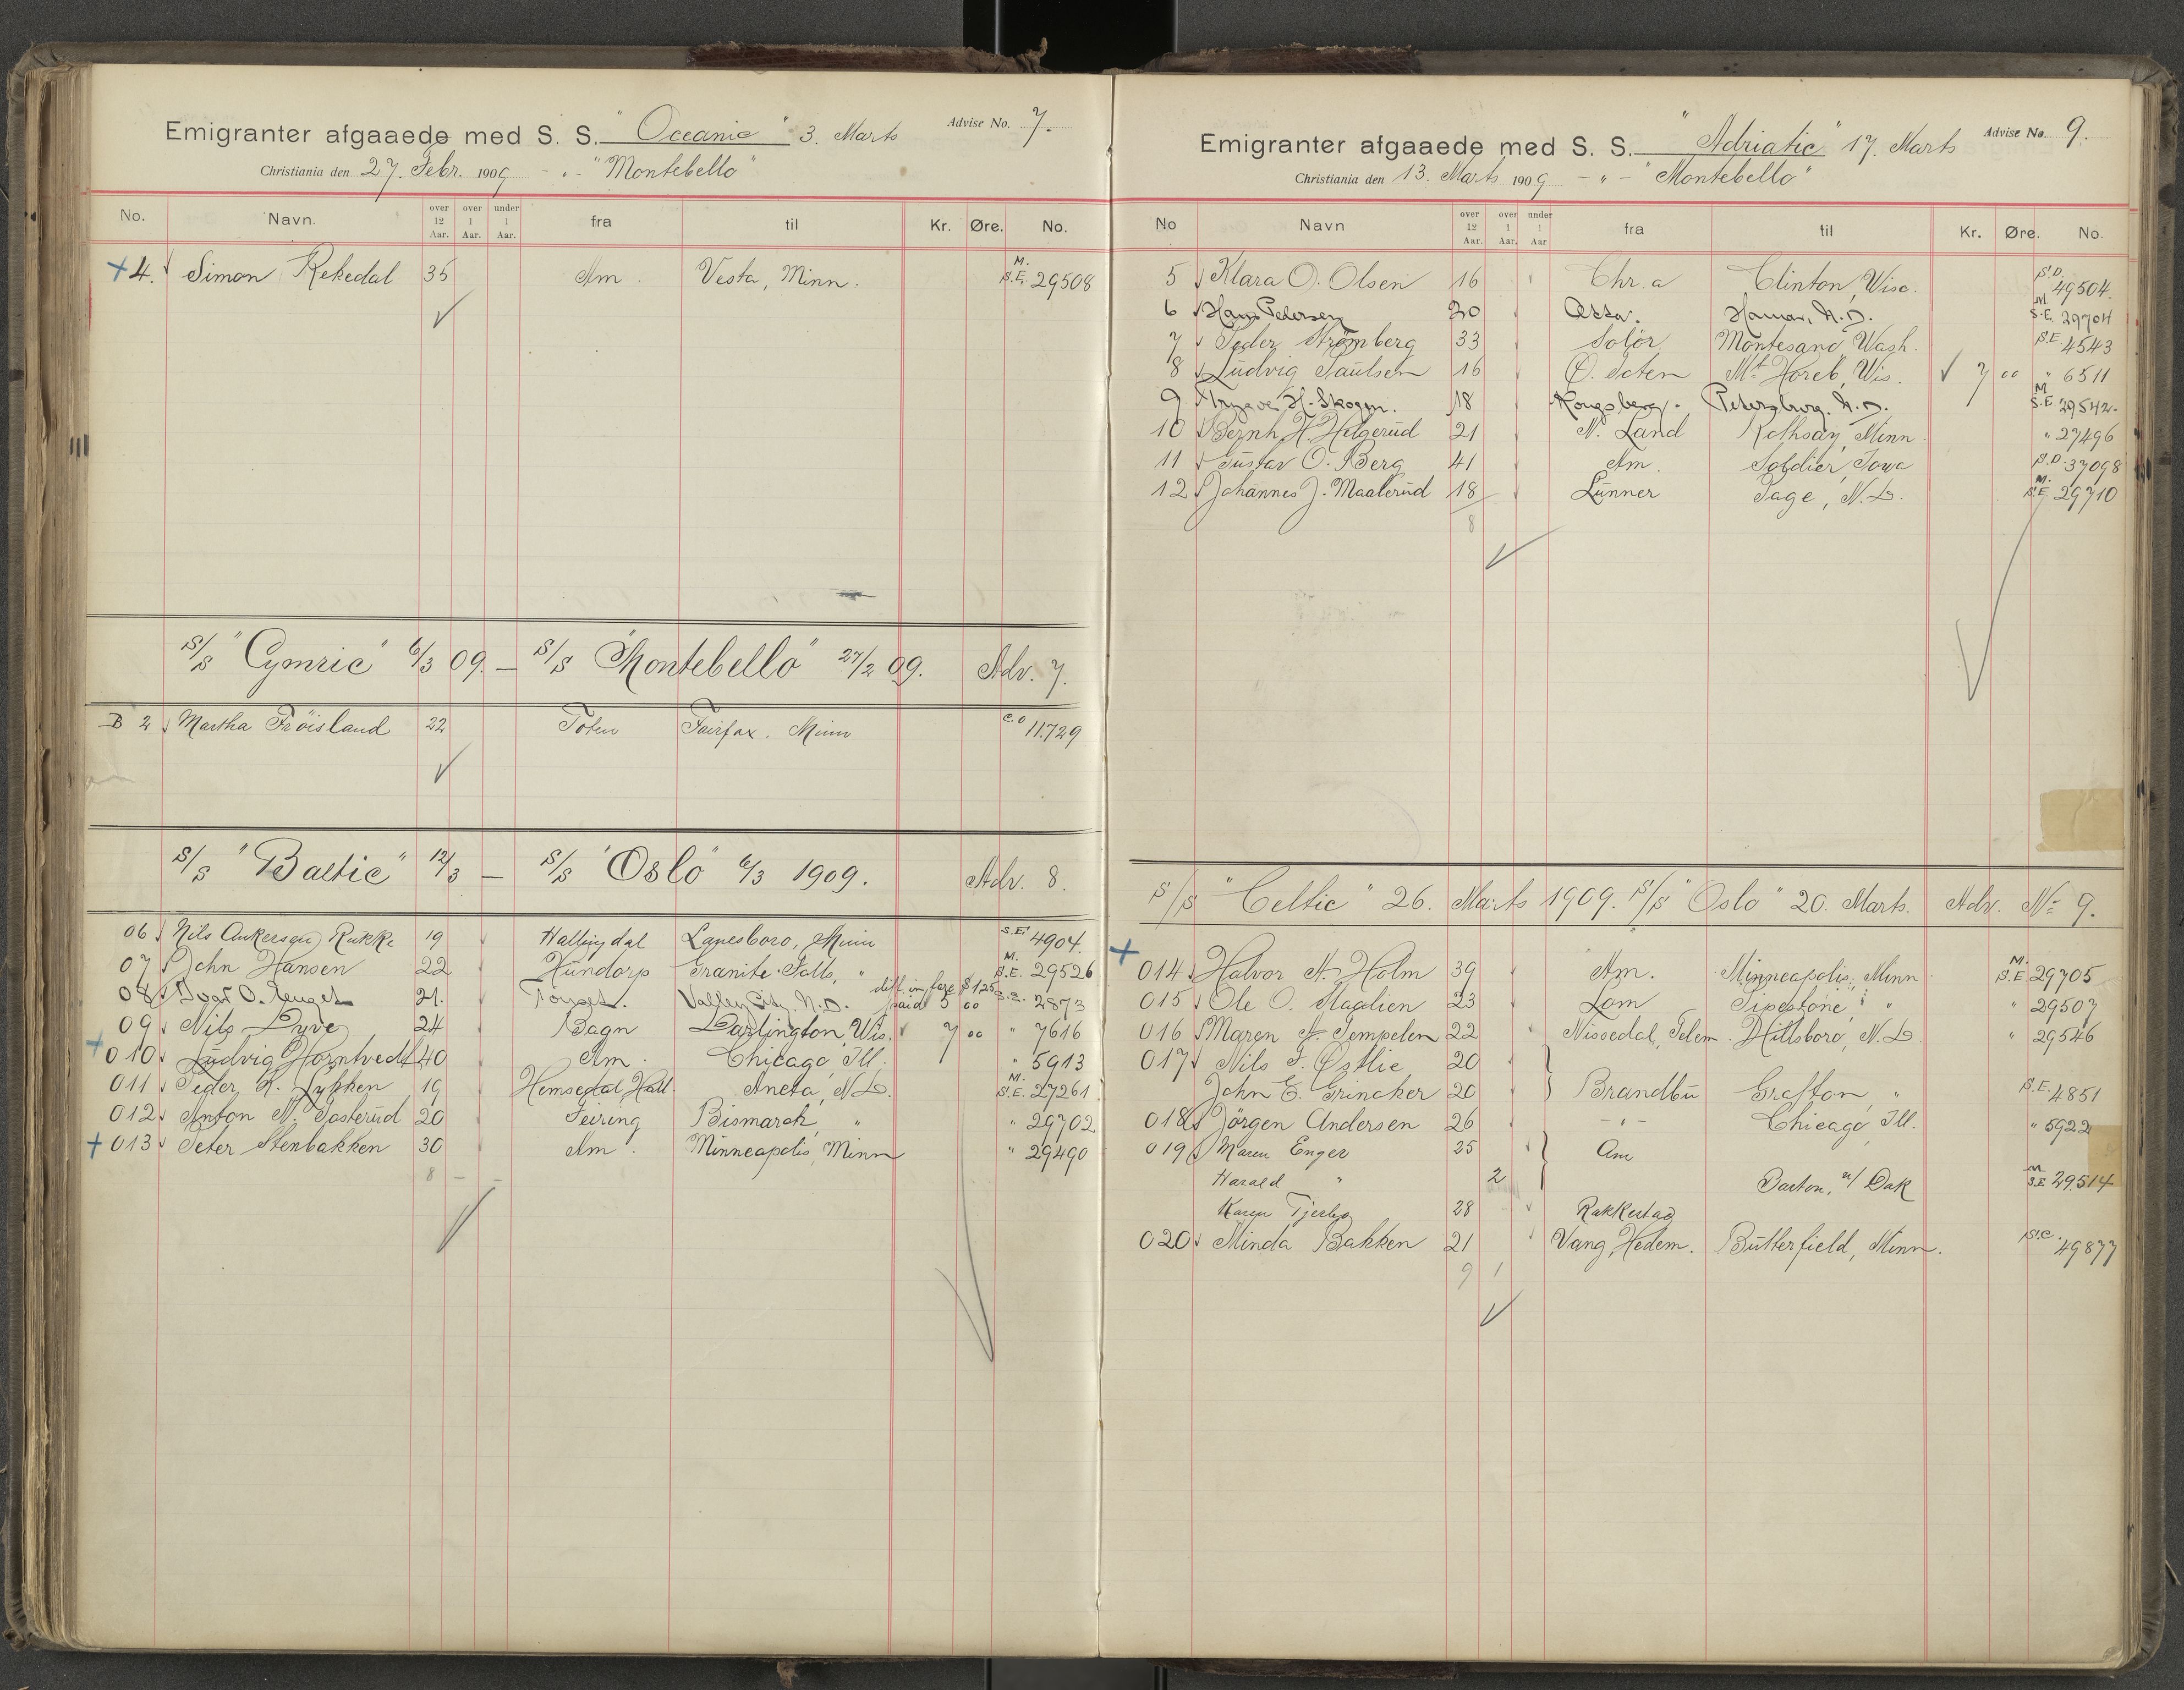 Emigranter afgaaede med S. S. "Oceanic" 3. Marts Advise No. 7.
Christiania den 27. Febr. 1909 - „ - "Montebello"
No. Navn. over 12 Aar. over 1 Aar. under 1 Aar. fra til Kr. Øre. No.
+ 4. Simon Rekedal 35 Am. Vesta, Minn. M. S.E. 29508
S/S "Cymric" 6/3 09. — S/S "Montebello" 27/2 09. Adv. 7.
B 2 Martha Fröisland 22 Toten Fairfax, Minn C.O 11729
S/S "Baltic" 12/3 — S/S "Oslo" 6/3 1909. Adv. 8.
06 Nils Ankersen Rukke 19 Hallingdal Lanesboro, Minn S.E. 4904.
07 John Hansen 22 Hundorp Granite Falls, " M. S.E. 29526
08 O. 21. Valley City, N.D. diff. in fare $1.25 paid 5 00 2873
09 Nils Dyve 24 Bagn Darlington, Wis. 7 00 " 7616
+ 010 Ludvig Horntvedt 40 Am. Chicago, Ill. " 5913
011 Peder K. Lykken 19 Hemsedal, Hall. Aneta, N.D. M. S.E. 27261
012 Anton N. Josterud 20 Feiring Bismarck, " " 29702
+ 013 Peter Stenbakken 30 Am. Minneapolis, Minn " 29490
8 - -
Emigranter afgaaede med S. S. "Adriatic" 17. Marts Advise No. 9.
Christiania den 13. Marts 1909 - „ - "Montebello"
No Navn over 12 Aar. over 1 Aar. under 1 Aar fra til Kr. Øre. No.
5 Klara O. Olsen 16 Chr.a Clinton, Wisc. S.D. 49504.
6 Hans Pedersen 20 Hamar, N.D. M S.E. 29704
7 Peder Strömberg 33 Solör Montesano, Wash. S.E. 4543
8 Ludvig Paulsen 16 Ö. Toten Mt Horeb, Wis. 7 00 " 6511
9 Trygve H. Skogen. 18 Kongsberg. Petersburg. N.D. M S.E. 29542.
10 Bernh. H. Helgerud 21 N. Land Rothsay, Minn. " 27496
11 Gustav O. Berg 41 Am. Soldier, Iowa S.D. 37098
12 Johannes J. Maalerud 18 Lunner Page, N.D. M. S.E. 29710
8
S/S "Celtic" 26. Marts 1909. S/S "Oslo" 20. Marts. Adv. No 9.
+ 014 Halvor A. Holm 39 Am. Minneapolis, Minn M. S.E. 29705
015 Ole O. Slaalien 23 Lom Pipestone, " " 29507
016 Maren A. Tempelen 22 Nissedal, Telem. Hillsboro, N.D. " 29546
017 Nils F. Østlie 20
John E. Grinaker 20 Brandbu Grafton, " S.E. 4851
018 Jörgen Andersen 26 - " - Chicago, Ill. " 5922
019 Maren Enger 25 Am
Harald " 2 Barton, n/ Dak M S.E 29514
Karen 28 Rakkestad
020 Minda Bakken 21 Vang, Hedem. Butterfield, Minn. S.C. 49877
9 1